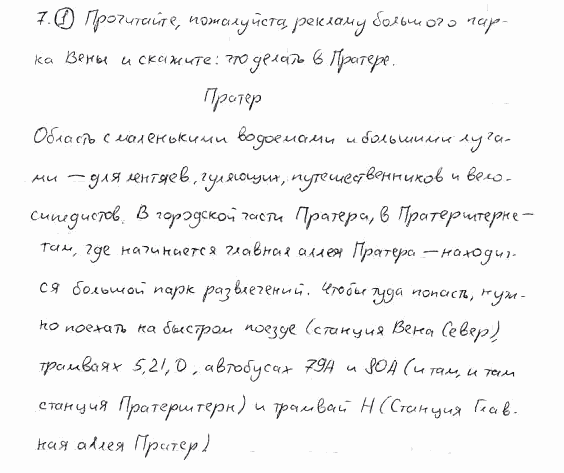 7. ① Прочитайте, пожалуйста, рекламу большого пар-
ка Вены и скажите: что делать в Пратере.
Пратер
Область с маленькими водоемами и большими луга-
ми — для лентяев, гуляющих, путешественников и вело-
сипедистов. В городской части Пратера, в Пратерштерне —
там, где начинается главная аллея Пратера — находит-
ся большой парк развлечений. Чтобы туда попасть, нуж-
но поехать на быстром поезде (станция Вена Север),
трамваях 5, 21, O, автобусах 79А и 80А (и там, и там
станция Пратерштерн) и трамвай Н (Станция Глав-
ная аллея Пратер)